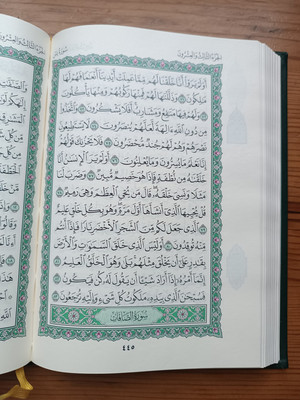 الجزء الثالث والعشرون
أَوَلَمْ يَرَوْا۟ أَنَّا خَلَقْنَا لَهُم مِّمَّا عَمِلَتْ أَيْدِينَآ أَنْعَٰمًا فَهُمْ لَهَا
مَٰلِكُونَ ٧١ وَذَلَّلْنَٰهَا لَهُمْ فَمِنْهَا رَكُوبُهُمْ وَمِنْهَا يَأْكُلُونَ
٧٢ وَلَهُمْ فِيهَا مَنَٰفِعُ وَمَشَارِبُ أَفَلَا يَشْكُرُونَ ٧٣ وَٱتَّخَذُوا۟
مِن دُونِ ٱللَّهِ ءَالِهَةً لَّعَلَّهُمْ يُنصَرُونَ ٧٤ لَا يَسْتَطِيعُونَ
نَصْرَهُمْ وَهُمْ لَهُمْ جُندٌ مُّحْضَرُونَ ٧٥ فَلَا يَحْزُنكَ قَوْلُهُمْ
إِنَّا نَعْلَمُ مَا يُسِرُّونَ وَمَا يُعْلِنُونَ ٧٦ أَوَلَمْ يَرَ ٱلْإِنسَٰنُ أَنَّا
خَلَقْنَٰهُ مِن نُّطْفَةٍ فَإِذَا هُوَ خَصِيمٌ مُّبِينٌ ٧٧ وَضَرَبَ لَنَا
مَثَلًا وَنَسِىَ خَلْقَهُۥ قَالَ مَن يُحْىِ ٱلْعِظَٰمَ وَهِىَ رَمِيمٌ ٧٨
قُلْ يُحْيِيهَا ٱلَّذِىٓ أَنشَأَهَآ أَوَّلَ مَرَّةٍ وَهُوَ بِكُلِّ خَلْقٍ عَلِيمٌ
٧٩ ٱلَّذِى جَعَلَ لَكُم مِّنَ ٱلشَّجَرِ ٱلْأَخْضَرِ نَارًا فَإِذَآ أَنتُم
مِّنْهُ تُوقِدُونَ ٨٠ أَوَلَيْسَ ٱلَّذِى خَلَقَ ٱلسَّمَٰوَٰتِ وَٱلْأَرْضَ
بِقَٰدِرٍ عَلَىٰٓ أَن يَخْلُقَ مِثْلَهُم بَلَىٰ وَهُوَ ٱلْخَلَّٰقُ ٱلْعَلِيمُ ٨١
إِنَّمَآ أَمْرُهُۥٓ إِذَآ أَرَادَ شَيْـًٔا أَن يَقُولَ لَهُۥ كُن فَيَكُونُ ٨٢
فَسُبْحَٰنَ ٱلَّذِى بِيَدِهِۦ مَلَكُوتُ كُلِّ شَىْءٍ وَإِلَيْهِ تُرْجَعُونَ ٨٣
سورة الصافات
٤٤٥